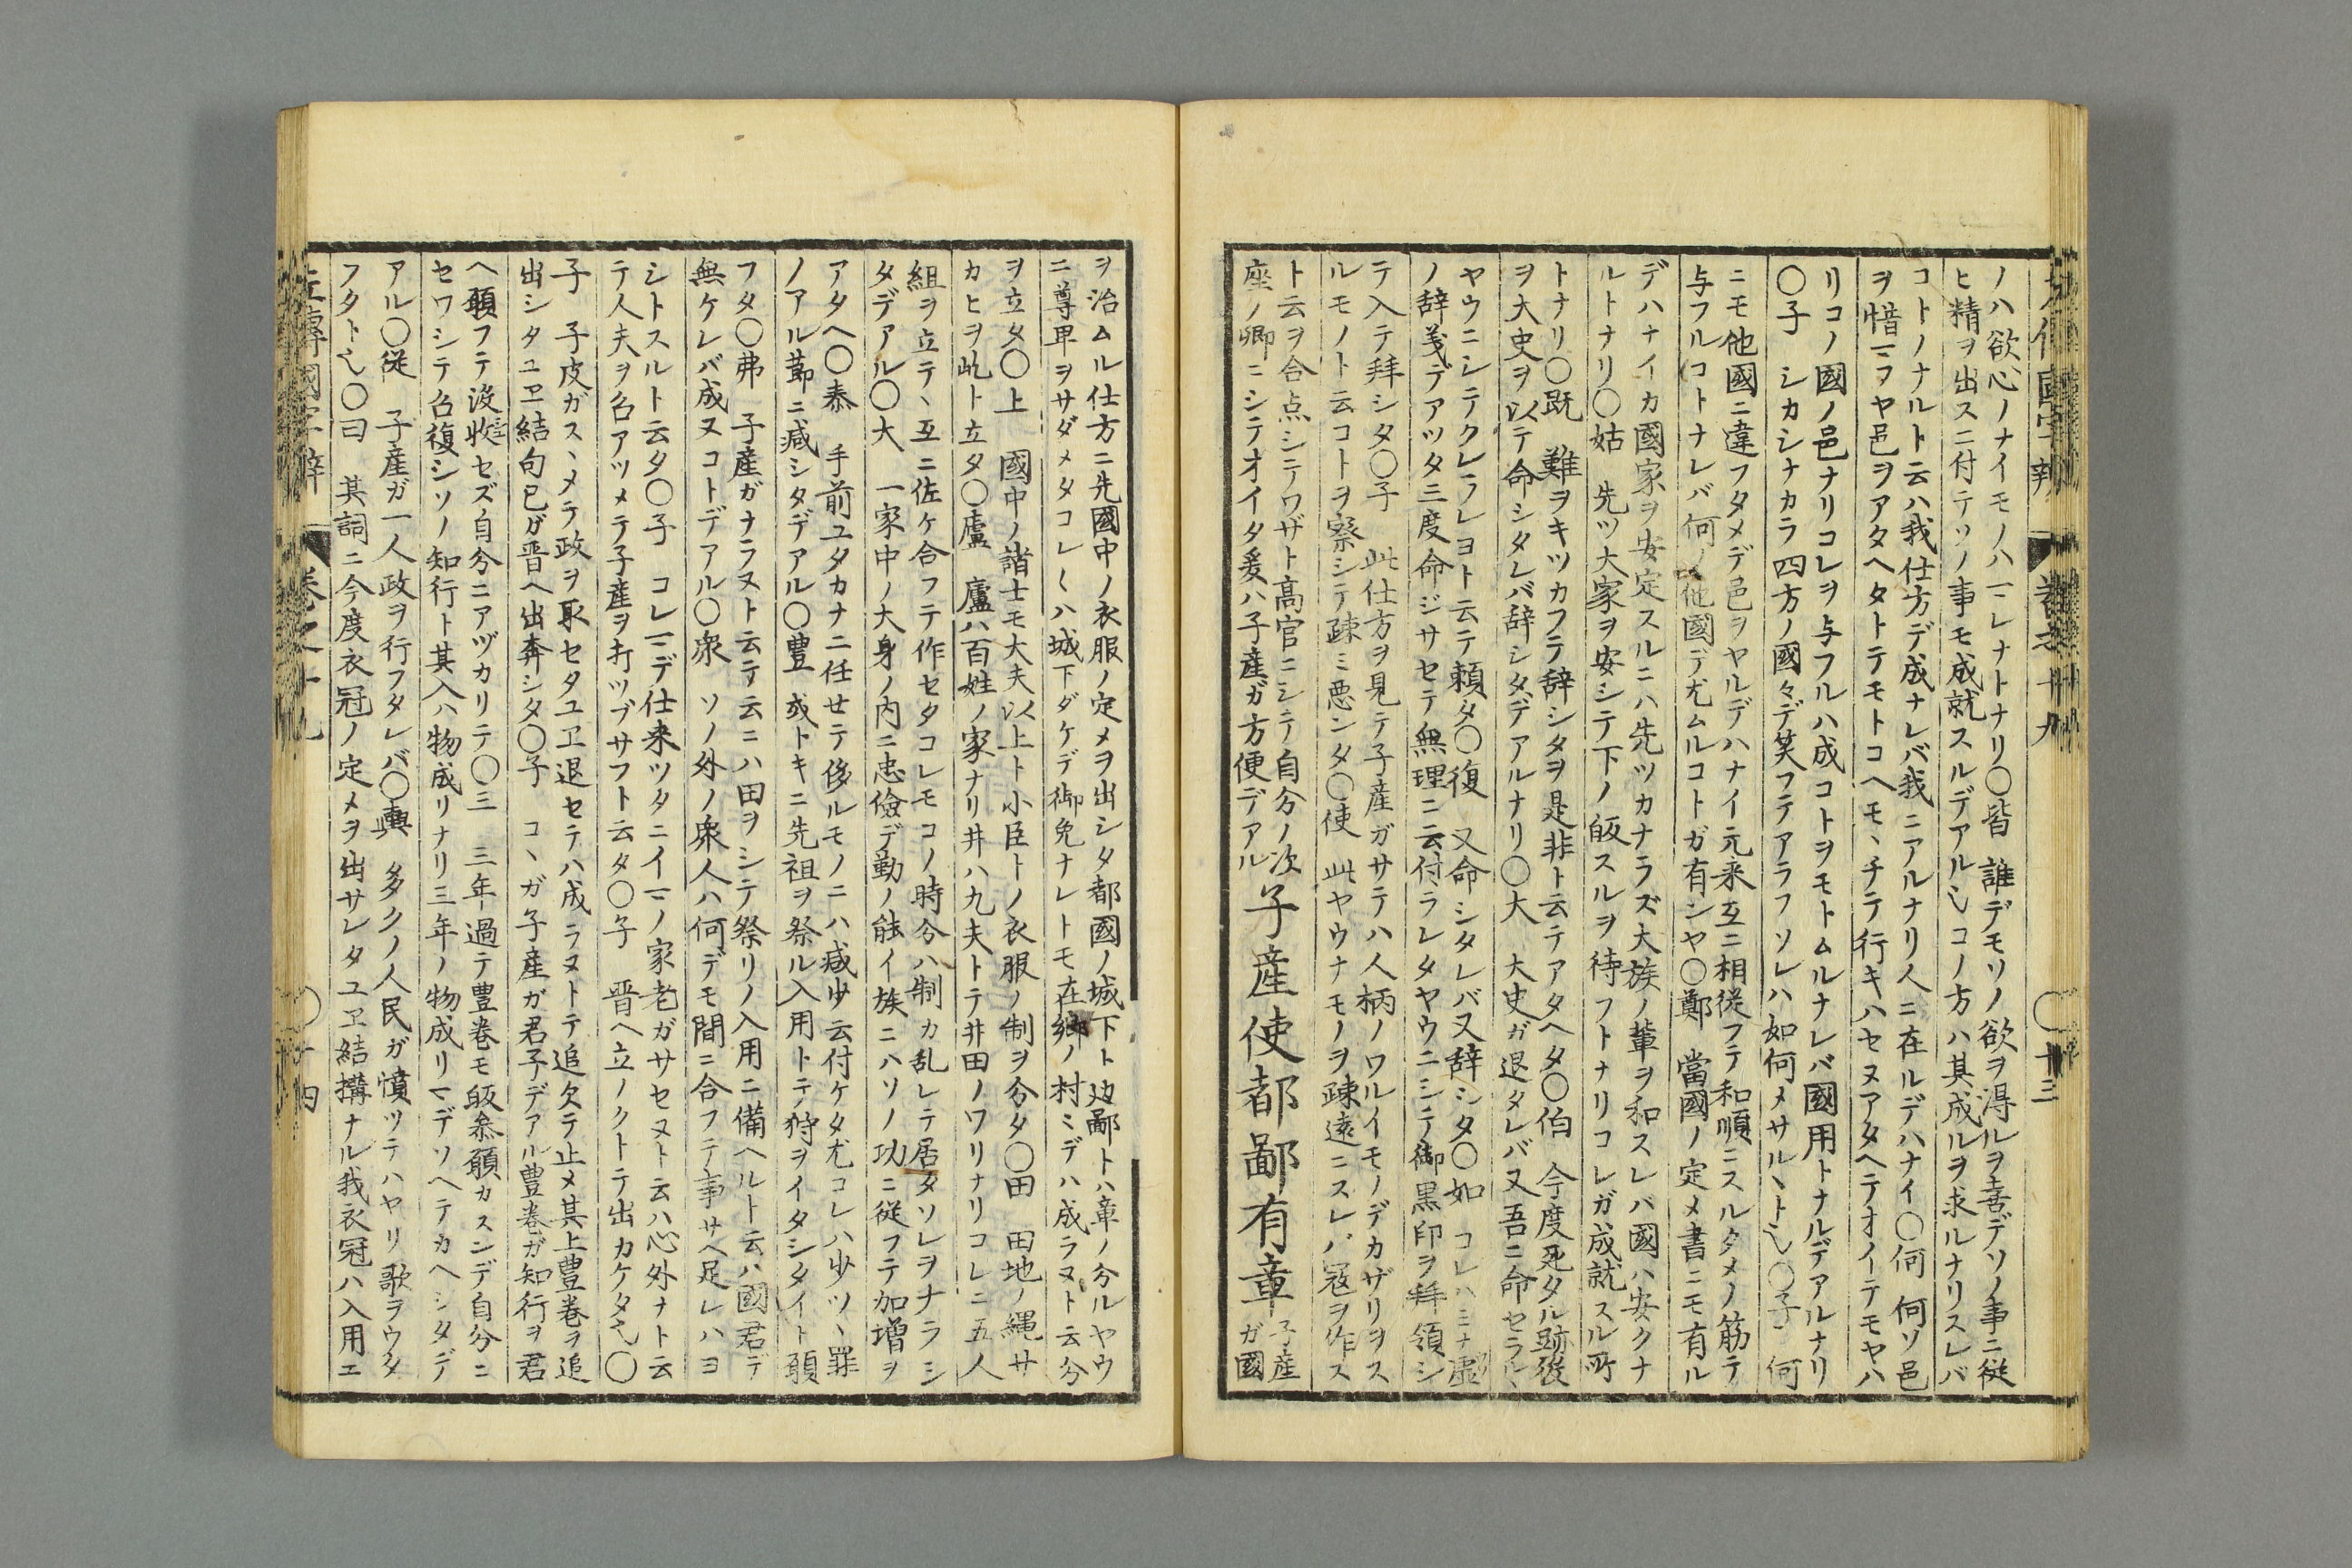 ノハ欲心ノナイモノハマレナトナリ〇皆 誰デモソノ欲ヲ淂ルヲ喜デソノ事ニ従
ヒ精ヲ出スニ付テソノ事モ成就スルデアル乀コノ方ハ其成ルヲ求ルナリスレバ
コトノナルト云ハ我仕方デ成ナレバ我ニアルナリ人ニ在ルデハナイ〇何 何ソ邑
ヲ惜マフヤ邑ヲアタヘタトテモトコヘモヽチテ行キハセヌアタヘテオイテモヤハ
リコノ國ノ邑ナリコレヲ与フルハ成コトヲモトムルナレバ國用トナルデアルナリ
〇子 シカシナカラ四方ノ國々デ笑フテアラフソレハ如何メサルヽト乀〇子 何
ニモ他國ニ違フタメデ邑ヲヤルデハナイ元来互ニ相従フテ和順ニスルタメノ筋テ
与フルコトナレバ何ノ他國デ尤ムルコトガ有ンヤ〇鄭 當國ノ定メ書ニモ有ル
デハナイカ國家ヲ安定スルニハ先ツカナラズ大族ノ輩ヲ和スレバ國ハ安クナ
ルトナリ〇姑 先ツ大家ヲ安シテ下ノ皈スルヲ待フトナリコレガ成就スル所
トナリ〇既 難ヲキツカフテ辞シタヲ是非ト云テアタヘタ〇伯 今度死タル跡後
ヲ大史ヲ以テ命シタレバ辞シタデアルナリ〇大 大史ガ退タレバ又吾ニ命セラルヽ
ヤウニシテクレラレヨト云テ頼タ〇復 又命シタレバ又辞シタ〇如 コレハミナ虚
ノ辞義デアツタ三度命ジサセテ無理ニ云付ラレタヤウニシテ御黒印ヲ拜領シ
テ入テ拜シタ〇子 此仕方ヲ見テ子産ガサテハ人柄ノワルイモノデカザリヲス
ルモノト云コトヲ察シテ疎ミ悪ンタ〇使 此ヤウナモノヲ疎遠ニスレバ冦ヲ作ス
ト云ヲ合点シテワザト高官ニシテ自分ノ次
座ノ卿ニシテオイタ爰ハ子產ガ方便デアル
子産使都鄙有章
子産
ガ國
ヲ治ムル仕方ニ先國中ノ衣服ノ定メヲ出シタ都國ノ城下ト边鄙トハ章ノ分ルヤウ
ニ尊卑ヲサダメタコレ〱ハ城下ダケデ御免ナレトモ在郷ノ村ミデハ成ラヌト云分
ヲ立タ〇上 國中ノ諸士モ大夫以上ト小臣トノ衣服ノ制ヲ分タ〇田 田地ノ縄サ
カヒヲ屹ト立タ〇廬 廬ハ百姓ノ家ナリ井ハ九夫トテ井田ノワリナリコレニ五人
組ヲ立テヽ互ニ佐ケ合フテ作セタコレモコノ時分ハ制カ乱レテ居タソレヲナラシ
タデアル〇大 一家中ノ大身ノ内ニ忠儉デ勤ノ能イ族ニハソノ功ニ従フテ加増ヲ
アタヘ〇泰 手前ユタカナニ任せテ侈ルモノニハ减少云付ケタ尤コレハ少ツヽ罪
ノアル莭ニ减シタデアル〇豊 或トキニ先祖ヲ祭ル入用トテ狩ヲイタシタイト願
フタ〇弗 子産ガナラヌト云テ云ニハ田ヲシテ祭リノ入用ニ備ヘルト云ハ國君デ
無ケレバ成ヌコトデアル〇衆 ソノ外ノ衆人ハ何デモ間ニ合フテ事サヘ足レハヨ
シトスルト云タ〇子 コレマデ仕来ツタニイマノ家老ガサセヌト云ハ心外ナト云
テ人夫ヲ召アツメテ子産ヲ打ツブサフト云タ〇子 晋ヘ立ノクトテ出カケタ乀〇
子 子皮ガスヽメテ政ヲ取セタユヱ退セテハ成ラヌトテ追欠テ止メ其上豊巻ヲ追
出シタユヱ結句已ガ晋ヘ出奔シタ〇子 コヽガ子産ガ君子デアル豊巻ガ知行ヲ君
ヘ願フテ没收セズ自分ニアヅカリテ〇三 三年過テ豊巻モ皈叅願カスンデ自分ニ
セワシテ召複シソノ知行ト其入ハ物成リナリ三年ノ物成リマデソヘテカヘシタデ
アル〇従 子産ガ一人政ヲ行フタレバ〇輿 多クノ人民ガ憤ツテハヤリ歌ヲウタ
フタト乀〇曰 其詞ニ今度衣冠ノ定メヲ出サレタユヱ結構ナル我衣冠ハ入用エ
左傳國字辯 巻之十九 〇十四